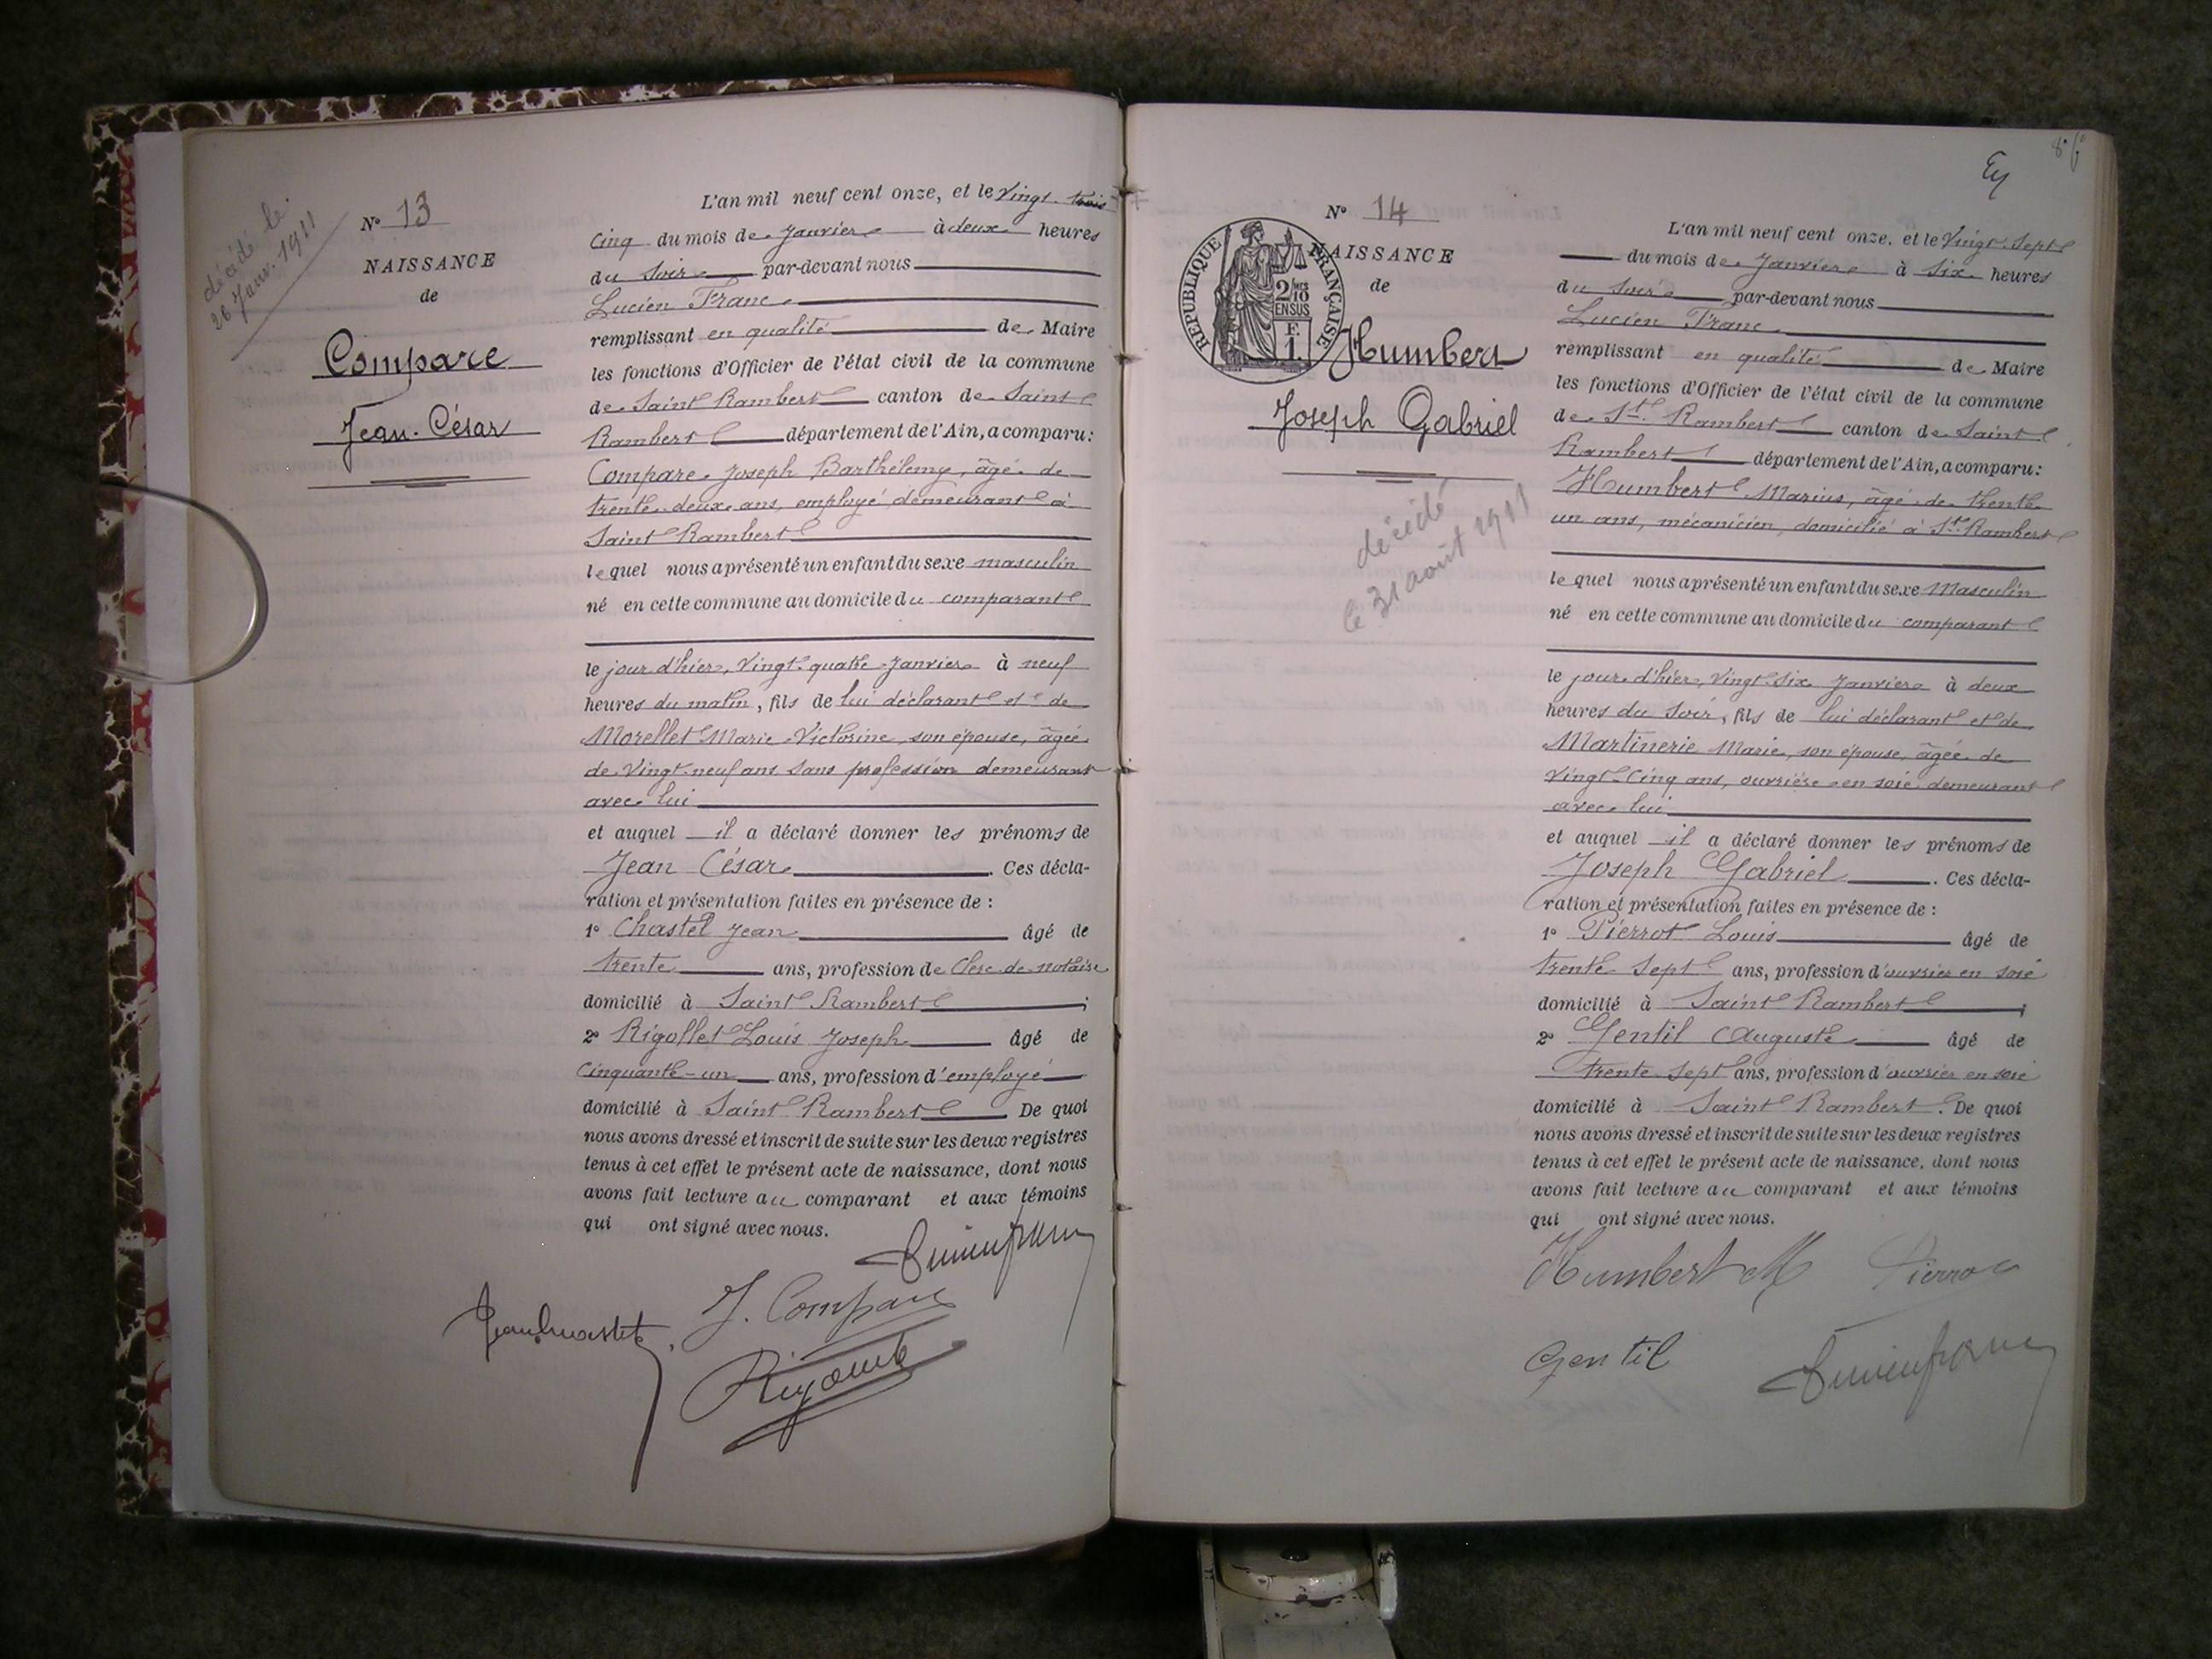 décédé le
26 Janv. 1911
N° 13
NAISSANCE
de
Compare
Jean-César
L'an mil neuf cent onze, et le Vingt-trois
cinq du mois de Janvier à deux heures
du soir par-devant nous
Lucien Franc
remplissant en qualité de Maire
les fonctions d'Officier de l'état civil de la commune
de Saint Rambert canton de Saint
Rambert département de l'Ain, a comparu:
Compare Joseph Barthélemy, âgé de
trente-deux ans, employé demeurant à
Saint Rambert
lequel nous a présenté un enfant du sexe masculin
né en cette commune au domicile du comparant
le jour d'hier, Vingt-quatre Janvier à neuf
heures du matin, fils de lui déclarant et de
Morellet Marie Victorine, son épouse, âgée
de Vingt-neuf ans sans profession demeurant
avec lui
et auquel il a déclaré donner les prénoms de
Jean César. Ces décla-
ration et présentation faites en présence de :
1° Chastel Jean âgé de
trente ans, profession de Clerc de notaire
domicilié à Saint Rambert ;
2° Rigollet Louis Joseph âgé de
cinquante-un ans, profession d'employé
domicilié à Saint Rambert De quoi
nous avons dressé et inscrit de suite sur les deux registres
tenus à cet effet le présent acte de naissance, dont nous
avons fait lecture au comparant et aux témoins
qui ont signé avec nous.
J. Compare
8
N° 14
NAISSANCE
de
RÉPUBLIQUE FRANÇAISE
2/10
EN SUS
F.
1.
Humbert
Joseph Gabriel
décédé
le 31 août 1911
L'an mil neuf cent onze, et le Vingt-Sept
du mois de Janvier à Six heures
du Soir par-devant nous
Lucien Franc
remplissant en qualité de Maire
les fonctions d'Officier de l'état civil de la commune
de St. Rambert canton de Saint
Rambert département de l'Ain, a comparu:
Humbert Marius, âgé de trente
un ans, mécanicien, domicilié à St. Rambert
lequel nous a présenté un enfant du sexe Masculin
né en cette commune au domicile du comparant
le jour d'hier, Vingt-Six Janvier à deux
heures du Soir, fils de lui déclarant et de
Martinerie Marie, son épouse, âgée de
Vingt-Cinq ans, ouvrière en soie demeurant
avec lui
et auquel il a déclaré donner les prénoms de
Joseph Gabriel. Ces décla-
ration et présentation faites en présence de :
1° Pierrot Louis âgé de
trente Sept ans, profession d'ouvrier en soie
domicilié à Saint Rambert ;
2° Gentil Auguste âgé de
trente-Sept ans, profession d'ouvrier en soie
domicilié à Saint Rambert. De quoi
nous avons dressé et inscrit de suite sur les deux registres
tenus à cet effet le présent acte de naissance, dont nous
avons fait lecture au comparant et aux témoins
qui ont signé avec nous.
Humbert M Pierrot
Gentil